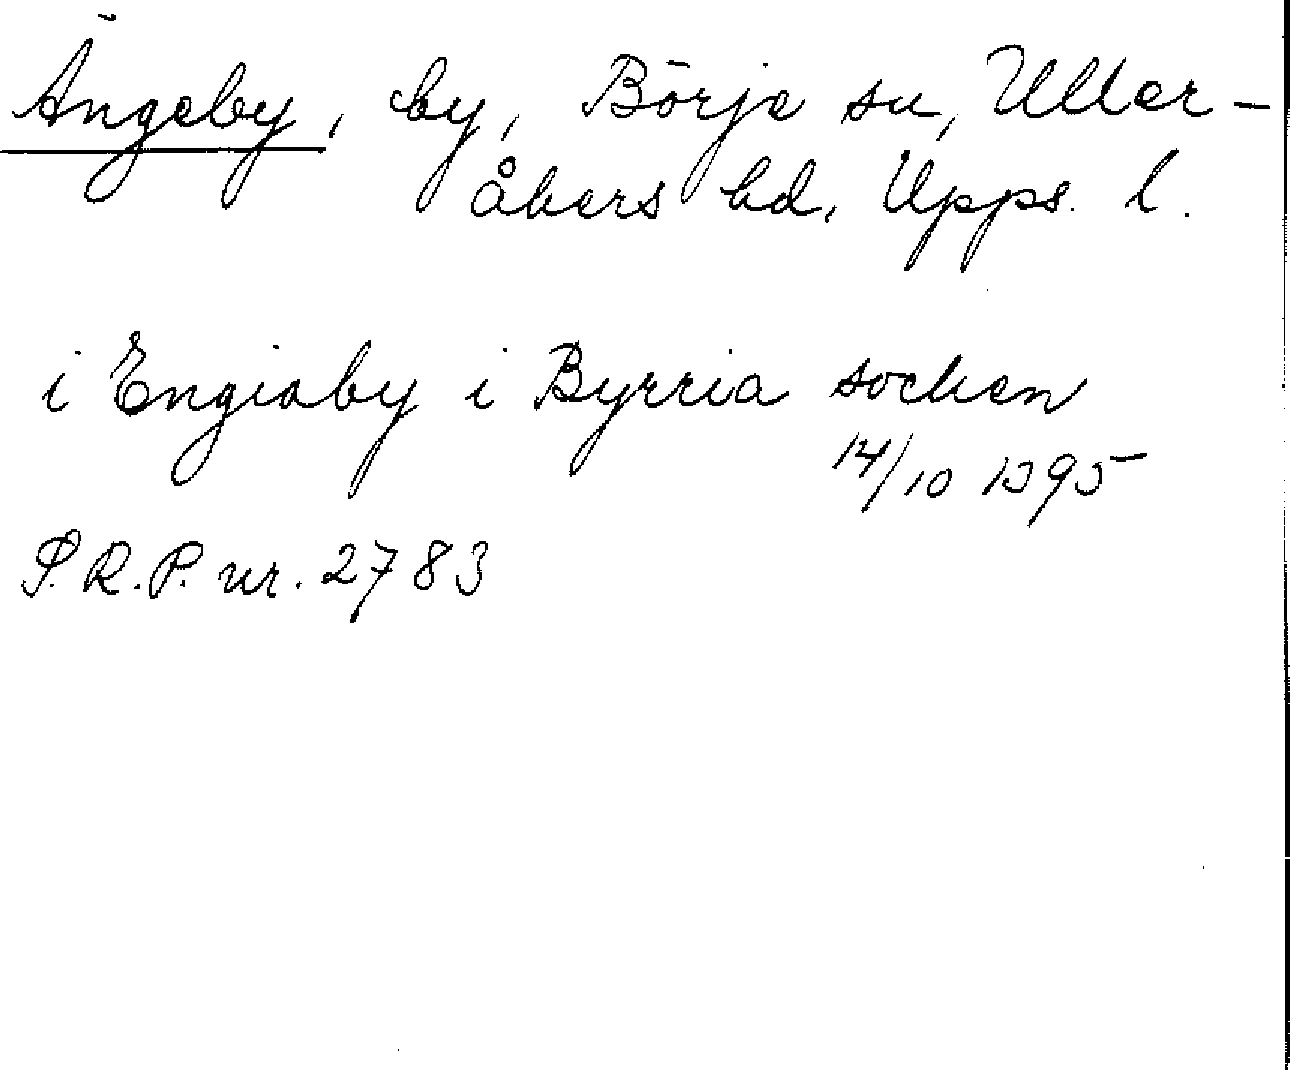 Ängeby, by, Börje sn, Uller-
åkers hd, Upps. l.
i Engiaby i Byrria socken
14/10 1395
S.R.P. nr. 2783